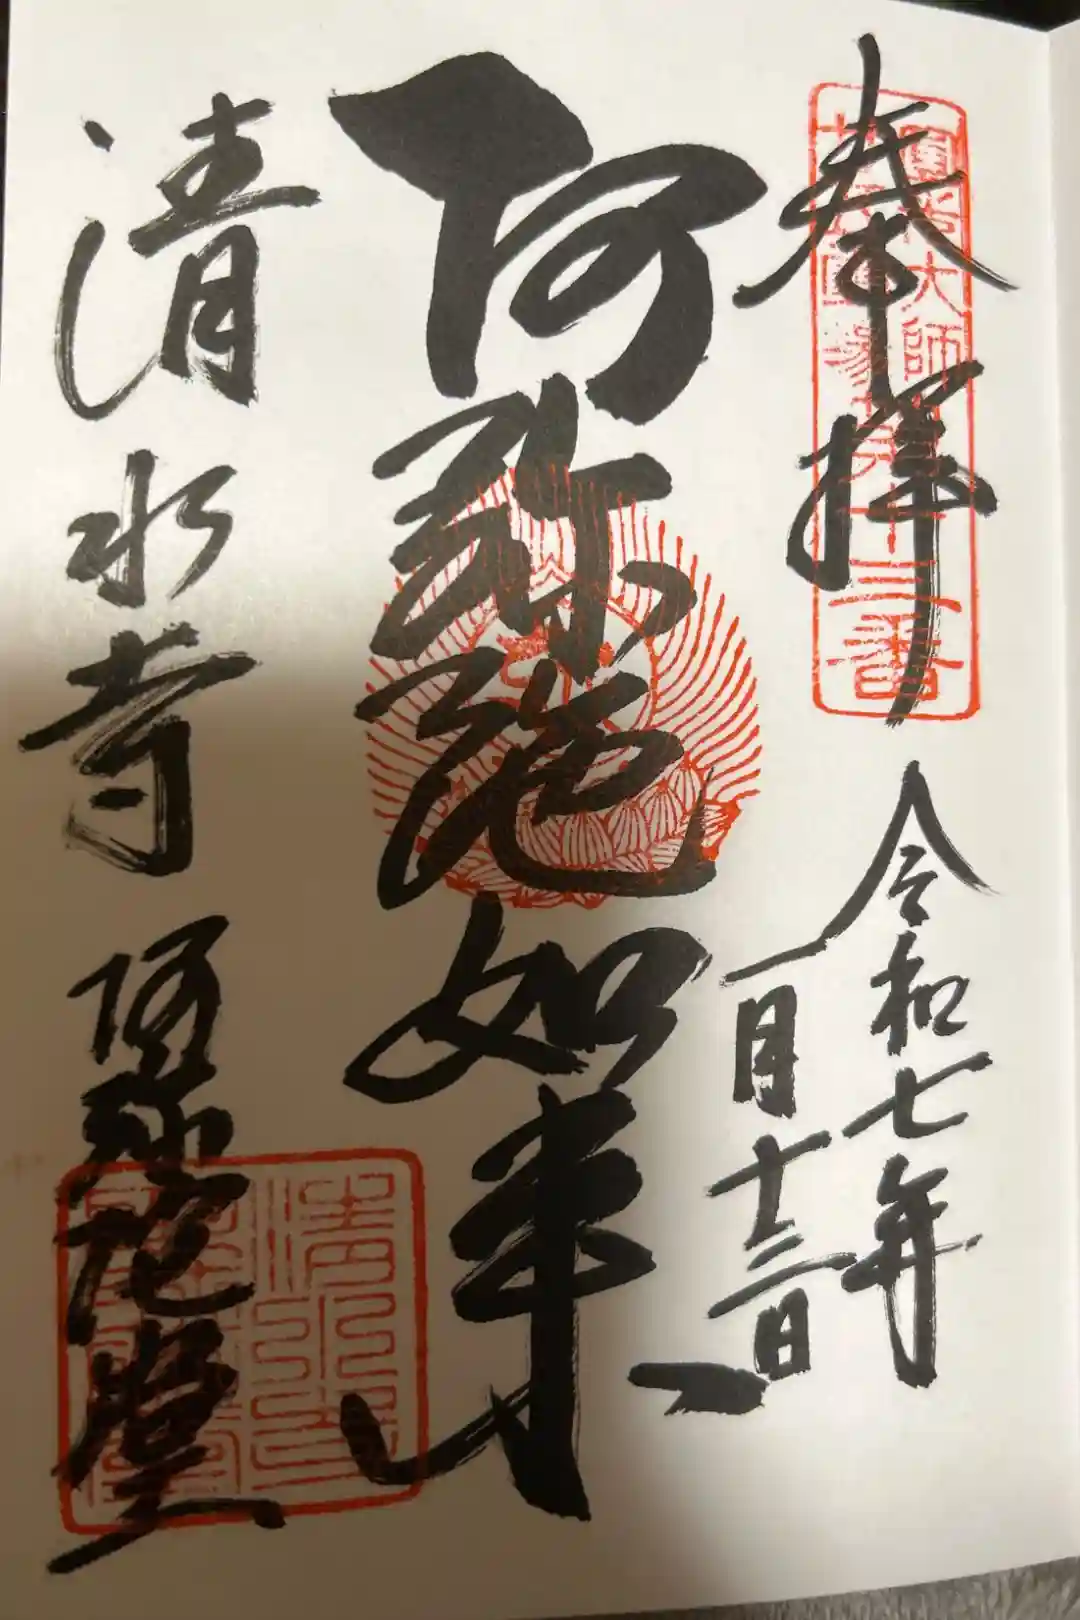 奉拝
圓光大師
第十三番
令和七年
一月十三日
阿弥陀如来
清水寺
阿弥陀堂
清水寺